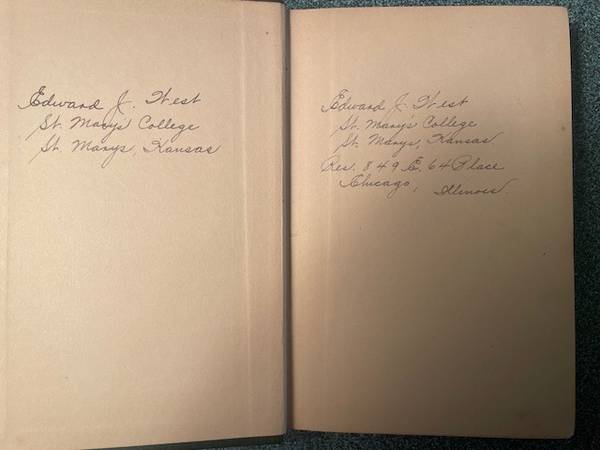 Edward J. West
St. Mary's College
St. Marys, Kansas
Edward J. West
St. Mary's College
St. Marys, Kansas.
Res. 849 E. 64 Place
Chicago, Illinois.